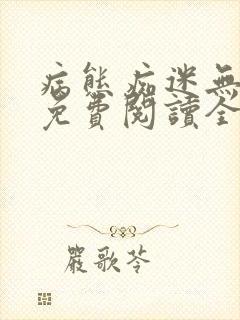 病態痴迷無
免費閱讀全
嚴歌苓